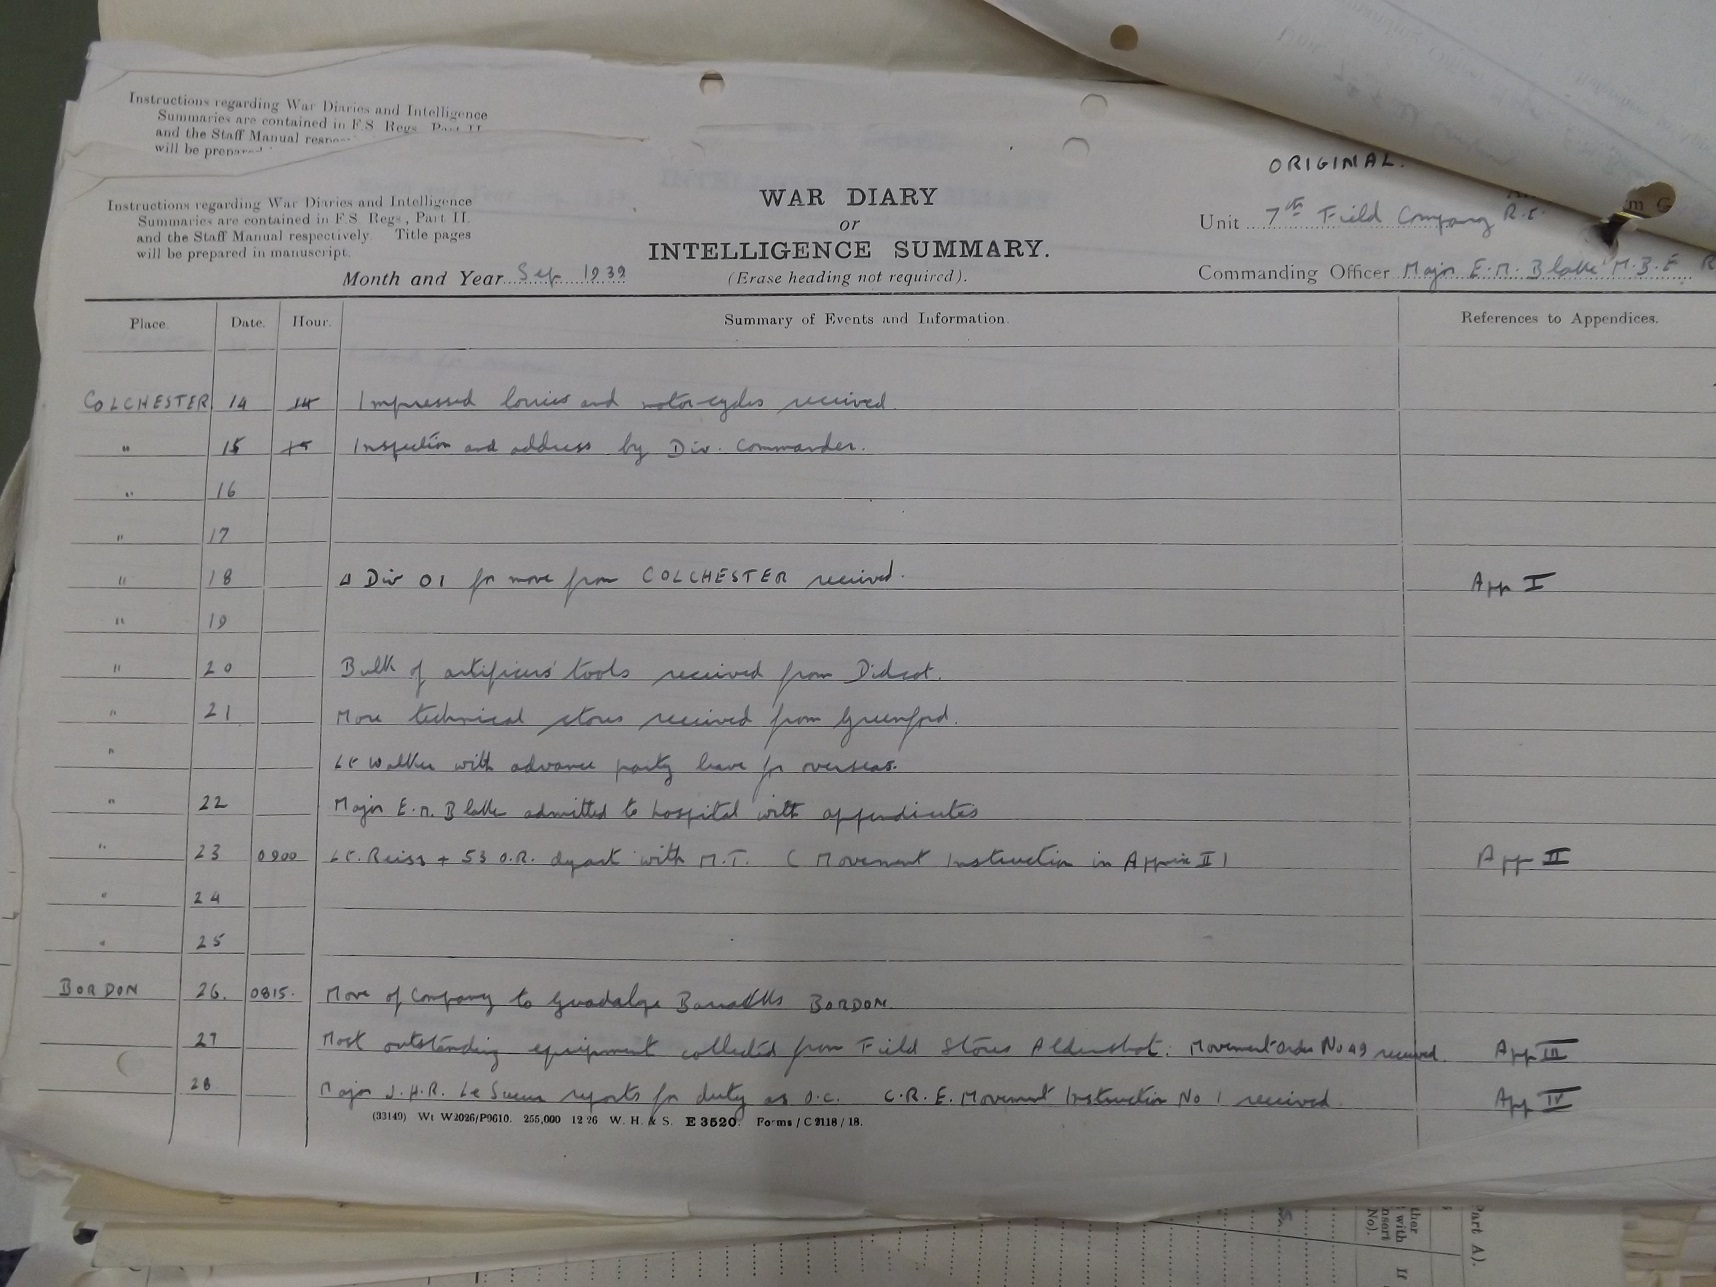 Instructions regarding War Diaries and Intelligence
Summaries are contained in F.S. Regs. Part II
and the Staff Manual
will be
ORIGINAL.
Instructions regarding War Diaries and Intelligence
Summaries are contained in F.S. Regs., Part II.
and the Staff Manual respectively. Title pages
will be prepared in manuscript.
WAR DIARY
or
INTELLIGENCE SUMMARY.
(Erase heading not required).
Month and Year Sep. 1939
Unit 7th Field Company R.E.
Commanding Officer Major E.M. Blake M.B.E R
Place. Date. Hour. Summary of Events and Information. References to Appendices.
COLCHESTER 14 14 Impressed lorries and motor-cycles received.
" 15 15 Inspection and address by Div. Commander.
" 16
" 17
" 18 4 Div 01 for move from COLCHESTER received. App I
" 19
" 20 Bulk of artificers' tools received from Didcot.
" 21 More technical stores received from Greenford.
" Lt Walker with advance party leave for overseas.
" 22 Major E.M. Blake admitted to hospital with appendicites
" 23 0900 Lt. Reiss + 53 O.R. depart with M.T. ( Movement Instruction in Appxix II ) App II
" 24
" 25
BORDON 26. 0815. Move of Company to Guadalope Barracks BORDON.
27 Most outstanding equipment collected from Field Stores Aldershot. Movement Order No 49 received. App III
28 Major J.H.R. Le Sueur reports for duty as O.C. C.R.E. Movement Instruction No 1 received. App IV
(33149) Wt W2026/P9610. 255,000 12 26 W. H. & S. E 3520. Forms / C 2118 / 18.
Part A).